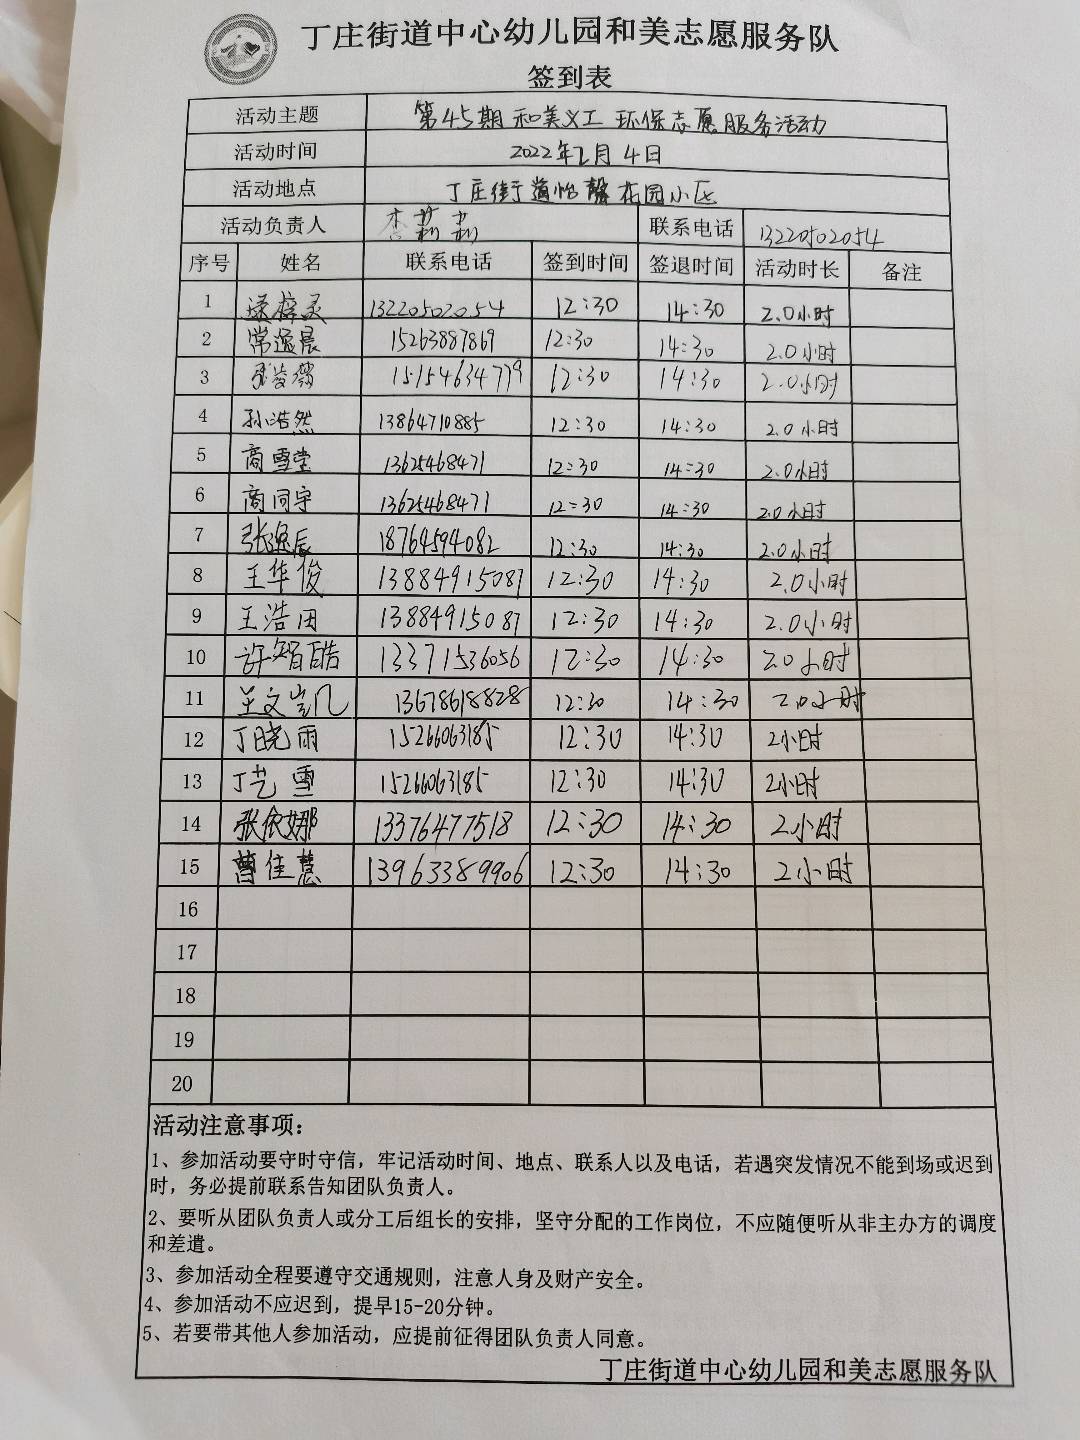 丁庄街道中心幼儿园和美志愿服务队
签到表
活动主题 第45期和美义工 环保志愿服务活动
活动时间 2022年2月4日
活动地点 丁庄街道怡馨花园小区
活动负责人 李莉莉 联系电话 13220502054
序号 姓名 联系电话 签到时间 签退时间 活动时长 备注
1 13220502054 12:30 14:30 2.0小时
2 常逸晨 15263887869 12:30 14:30 2.0小时
3 15154634779 12:30 14:30 2.0小时
4 孙浩然 13864710885 12:30 14:30 2.0小时
5 商雪莹 13625468471 12:30 14:30 2.0小时
6 商同宇 13625468471 12:30 14:30 2.0小时
7 张逸辰 18764594082 12:30 14:30 2.0小时
8 王华俊 13884915087 12:30 14:30 2.0小时
9 王浩田 13884915087 12:30 14:30 2.0小时
10 许智皓 13371536056 12:30 14:30 2.0小时
11 13678618828 12:30 14:30 2.0小时
12 丁晓雨 15266063185 12:30 14:30 2小时
13 丁艺雪 15266063185 12:30 14:30 2小时
14 张依娜 13376477518 12:30 14:30 2小时
15 曹佳慧 13963389906 12:30 14:30 2小时
16
17
18
19
20
活动注意事项：
1、参加活动要守时守信，牢记活动时间、地点、联系人以及电话，若遇突发情况不能到场或迟到
时，务必提前联系告知团队负责人。
2、要听从团队负责人或分工后组长的安排，坚守分配的工作岗位，不应随便听从非主办方的调度
和差遣。
3、参加活动全程要遵守交通规则，注意人身及财产安全。
4、参加活动不应迟到，提早15-20分钟。
5、若要带其他人参加活动，应提前征得团队负责人同意。
丁庄街道中心幼儿园和美志愿服务队